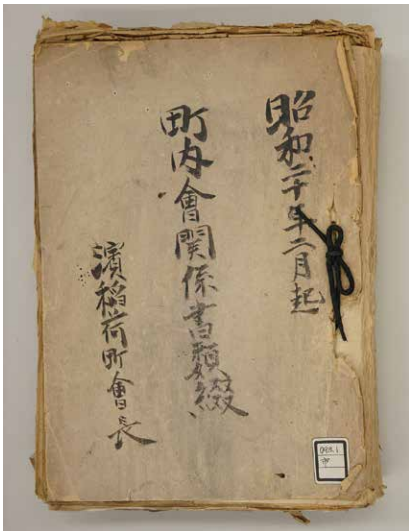 昭和二十年二月起
町内會関係書類綴
濱稲荷町會長